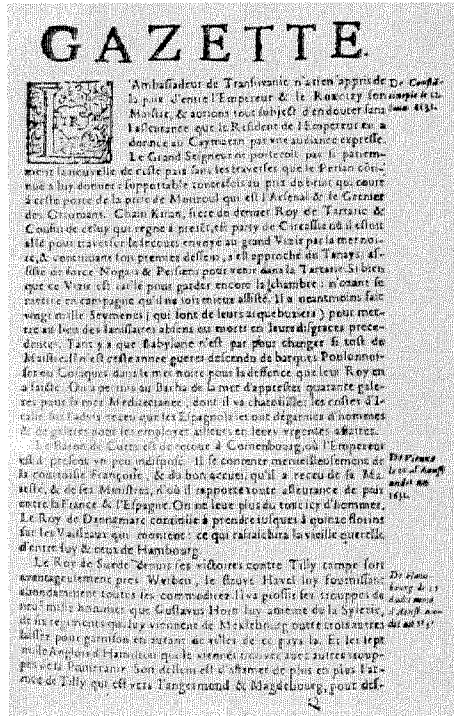 GAZETTE.
L'Ambassadeur de Transilvanie n'a rien appris de
la paix d'entre l'Empereur & le son
Maistre, & aurions tout subject d'en douter sans
l'asseurance que le Resident de l'Empereur en a
donnée au Caymacan par vne audiance expresse.
Le Grand Seigneur ne porteroit pas si patiem-
ment la nouvelle de ceste paix sans les traverses que le Persan conti-
nuë à luy donner: supportable toutesfois au prix du bruit qui court
à ceste porte de la prise de qui est l'Arsenal & le Grenier
des Ottomans. Chain Kiran, frere du dernier Roy de Tartarie &
Cousin de celuy qui regne à present, est party de Circassie où il estoit
allé pour traverser le secours envoyé au grand Vizir par la mer noi-
re, & continuant son premier dessein, a esté approché du Tanays, as-
sisté de force Nogais & Persiens pour venir dans la Tartarie. Si bien
que ce Vizir est taillé pour garder encore la chambre: n'ozant se
mettre en campagne qu'il ne soit mieux assisté. Il a neantmoins fait
vingt mille Seymenes (qui sont de leurs arquebusiers) pour met-
tre au lieu des Ianissaires absens ou morts en leurs disgraces prece-
dentes. Tant y a que Babylone n'est pas pour changer si tost de
Maistre. Il n'est ceste année gueres descendu de barques Poulonnoi-
ses ou Cosaques dans la mer noire pour la deffence que leur Roy en
a faicte. On a permis au Bacha de la mer d'apprester quarante gale-
res pour la mer Mediterranée, dont il va chatouiller les costes d'I-
talie, sur l'advis receu que les Espagnols les ont dégarnies d'hommes
& de galeres pour les employer ailleurs en leurs vrgentes affaires.
Le Baron de est de retour à où l'Empereur
est à present vn peu indisposé. Il se contente merveilleusement de
la courtoisie Françoise, & du bon accueil qu'il a receu de sa Ma-
jesté, & de ses Ministres, d'où il rapporte toute asseurance de paix
entre la France & l'Espagne. On ne leve plus du tout icy d'hommes.
Le Roy de Dannemarc continuë à prendre iusques à quinze florins
sur les Vaisseaux qui montent: ce qui rafraichira la vieille querelle
d'entre luy & ceux de Hambourg.
Le Roy de Suede depuis ses victoires contre Tilly campe fort
avantageusement pres Weiben, le fleuve Havel luy fournissant
abondamment toutes les commoditez. Il va grossir ses trouppes de
neuf mille hommes que Gustavus Horn luy ameine de la Silesie,
de six regiments qui luy viennent de Meklebourg outre trois autres
laissez pour garnison en autant de villes de ce pays la. Et les sept
mille Anglois d'Hamilton qui le viennent trouver avec autres troup-
pes vers Pomeranie. Son dessein est d'affamer de plus en plus l'ar-
mée de Tilly qui est vers Tangermond & Magdebourg, pour def-
De Constă-
1631.
De Vienne
1631.
De Ham-
bourg